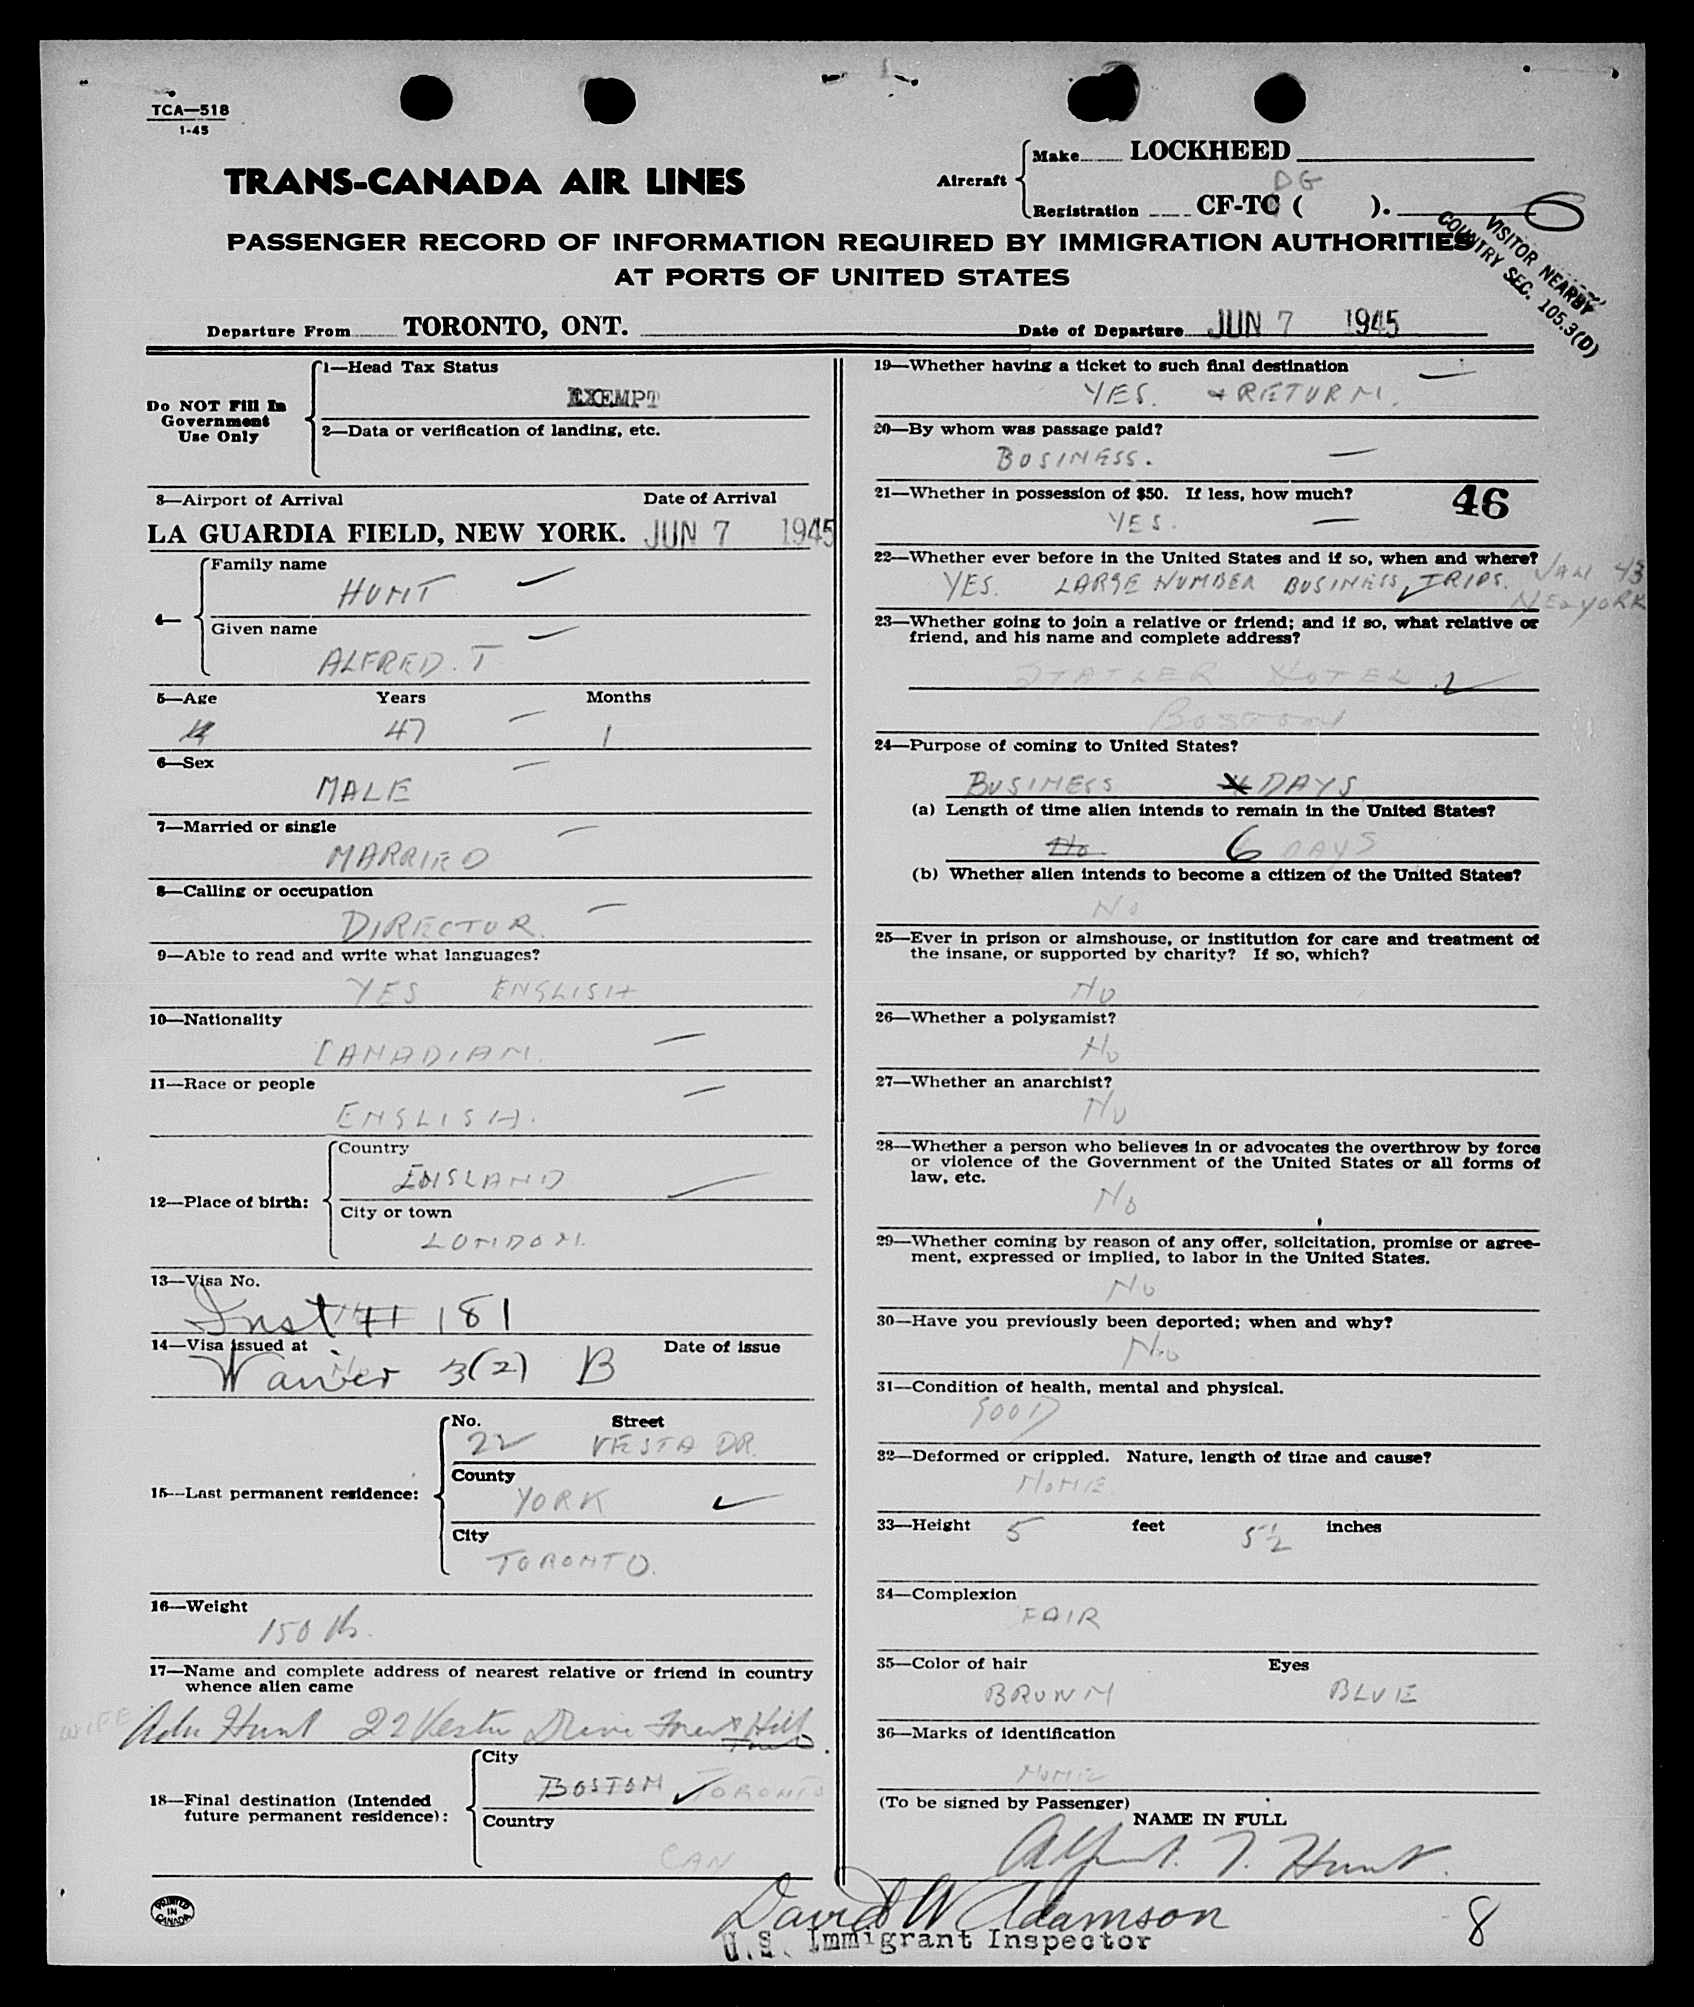 TCA—518
1-45
TRANS-CANADA AIR LINES
Aircraft
Make LOCKHEED
DG
Registration CF-TC ( ).
6
PASSENGER RECORD OF INFORMATION REQUIRED BY IMMIGRATION AUTHORITIES
AT PORTS OF UNITED STATES
VISITOR NEARBY
COUNTRY SEC. 105.3(D)
Departure From TORONTO, ONT. Date of Departure JUN 7 1945
Do NOT Fill In
Government
Use Only
1—Head Tax Status
EXEMPT
2—Data or verification of landing, etc.
3—Airport of Arrival Date of Arrival
LA GUARDIA FIELD, NEW YORK. JUN 7 1945
4—
Family name
HUNT
Given name
ALFRED. T
5—Age Years Months
47 1
6—Sex
MALE
7—Married or single
MARRIED
8—Calling or occupation
DIRECTOR.
9—Able to read and write what languages?
YES ENGLISH
10—Nationality
CANADIAN.
11—Race or people
ENGLISH.
12—Place of birth:
Country
ENGLAND
City or town
LONDON.
13—Visa No.
Inst # 181
14—Visa issued at Date of issue
Waiver 3(2) B
15—Last permanent residence:
No. Street
22 VESTA DR.
County
YORK
City
TORONTO.
16—Weight
150 lb.
17—Name and complete address of nearest relative or friend in country
whence alien came
WIFE Ada Hunt 22 Vesta Drive Forest Hill
18—Final destination (Intended
future permanent residence):
City
BOSTON TORONTO
Country
CAN
PRINTED
IN
CANADA
19—Whether having a ticket to such final destination
YES. + RETURN.
20—By whom was passage paid?
BUSINESS.
21—Whether in possession of $50. If less, how much?
YES.
46
22—Whether ever before in the United States and if so, when and where?
YES. LARGE NUMBER BUSINESS TRIPS. JAN 43
NEW YORK
23—Whether going to join a relative or friend; and if so, what relative or
friend, and his name and complete address?
STATLER HOTEL
BOSTON
24—Purpose of coming to United States?
BUSINESS DAYS
(a) Length of time alien intends to remain in the United States?
No. 6 DAYS
(b) Whether alien intends to become a citizen of the United States?
No
25—Ever in prison or almshouse, or institution for care and treatment of
the insane, or supported by charity? If so, which?
No
26—Whether a polygamist?
No
27—Whether an anarchist?
No
28—Whether a person who believes in or advocates the overthrow by force
or violence of the Government of the United States or all forms of
law, etc.
No
29—Whether coming by reason of any offer, solicitation, promise or agree-
ment, expressed or implied, to labor in the United States.
No
30—Have you previously been deported; when and why?
No
31—Condition of health, mental and physical.
GOOD
32—Deformed or crippled. Nature, length of time and cause?
NONE
33—Height 5 feet 5½ inches
34—Complexion
FAIR
35—Color of hair Eyes
BROWN BLUE
36—Marks of identification
NONE
(To be signed by Passenger)
NAME IN FULL
Alfred. T. Hunt.
David W Adamson
U.S. Immigrant Inspector
8